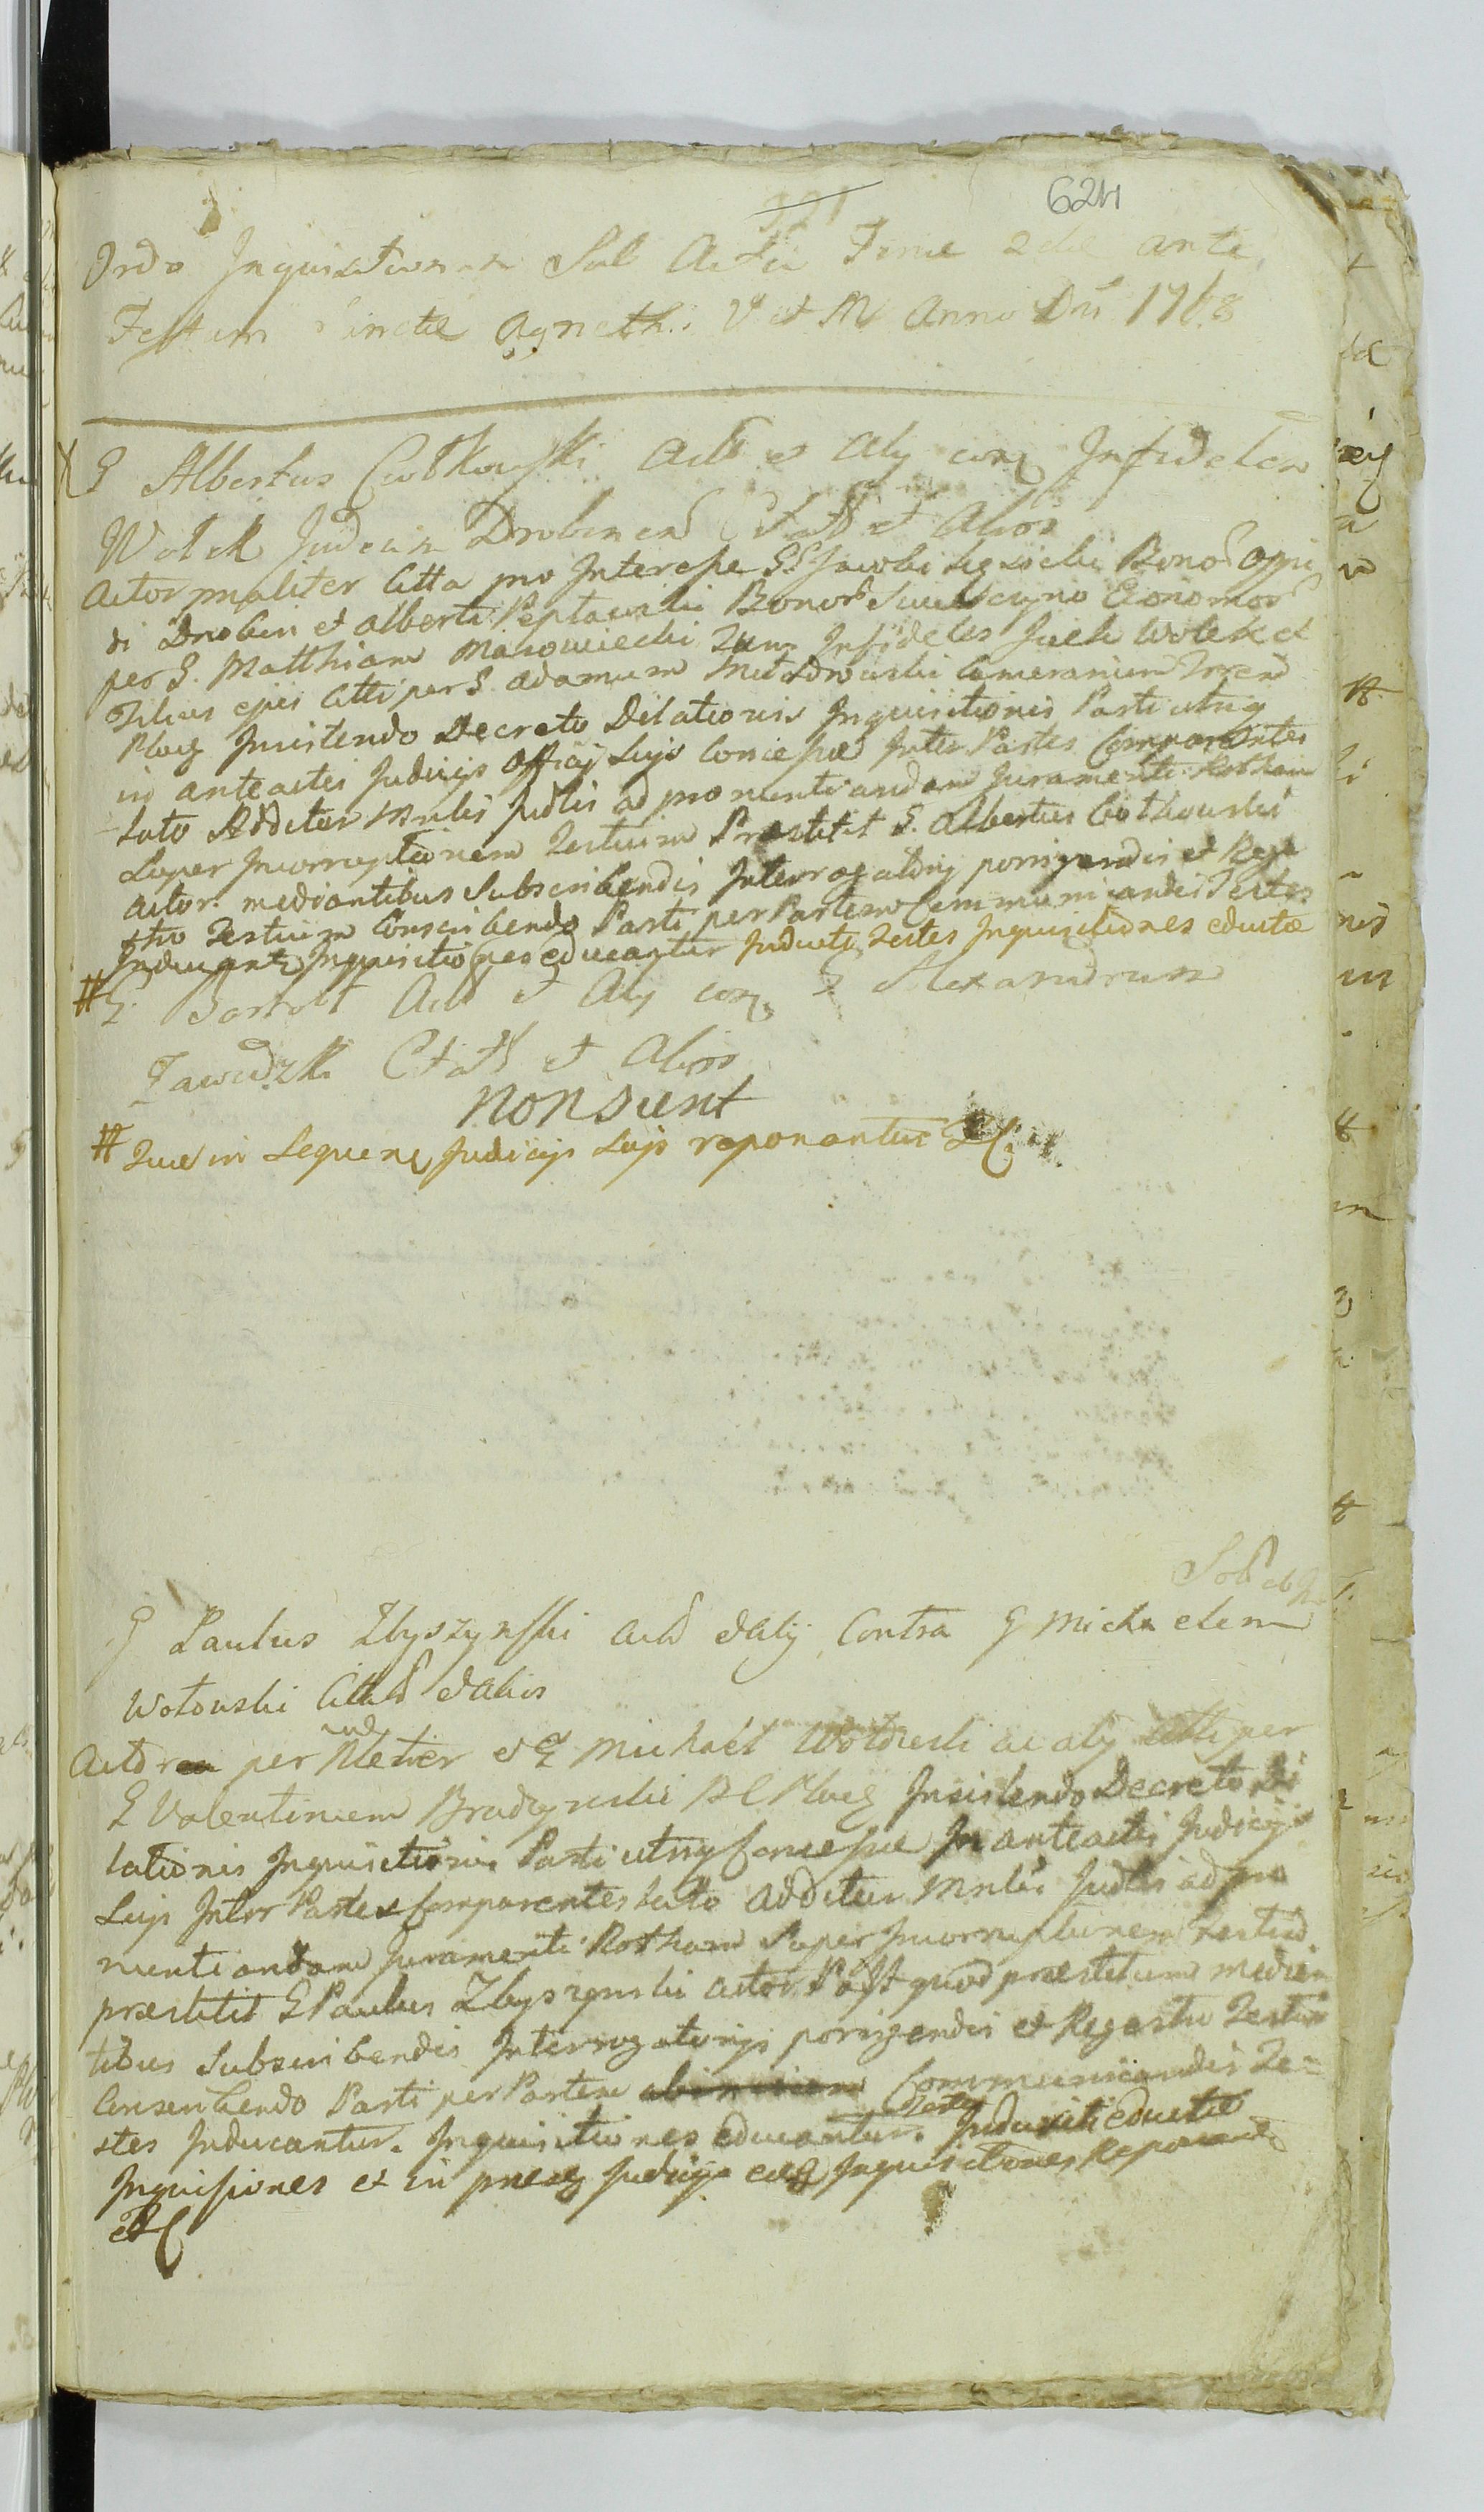 624
Ordo Inquisitionum Sub Actu Ferie 2dae ante
Festum Sanctae Agnethis V et M Anno Dni 1768
G Albertus Ciołkowski Act et Aly conq Infidelem
Wolek Judeum Drobinen Citat et Alios
Actor pnaliter Citta pro Interesse GG Jacobi Bonor Oppi
di Drobin et Alberti Peptowski Bonor Economor
per G. Matthiam Mazowiecki Tum Infideles Jzek Wolek et
Filius ejus Citti per G. Adamum Camerarium
Ploc Insistendo Decreto Dilationis Inquisitionis Parti utriq
in anteactis Judicijs Officij Sujs Concessae Inter Partes Comparentes
Lato Additur Mnlis Judlis ad pronuntiandam Juramenti Rotham
Super Incorruptionem Testium Praestitit G. Albertus Ciołkowski
Actor mediantibus Subscribendis Interrogatorijs porrigendis et Rege
stro Testium Conscribendo Parti per Partem Communicandis Testes
Inducantr Inquisitiones educantur Inducti Testes Inquisitiones eductae
# G. Bartolt Act et Aly conq G Alexandrum
Zawidzki Citat et Alios
Non sunt
# Quae in Sequenq Judicijs Sujs reponantur
G Paulus Zbyszynski Act et Alij Contra G Michaelem
Wołowski Citat et Alios
Actorea per et G Michael Wołowski ac alij Citti per
G Valentinum Bradzynski Ploc Insistendo Decreto Di
lationis Inquisitionis Parti utriq Concessae In anteactis Judicijs
Sujs Inter Partes Comparentes Lato Additur Mnlis Judlis ad pro
nuntiandam Juramenti Rotham Super Incorruptionem Testiu
praestitit G Paulus Zbyszynski Actor Post quod praestitum median
tibus Subscribendis Interrogatorijs porrigendis et Regestro Testium
Conscribendo Parti per Partem Communicandis Te=
stes Inducantur. Inquisitiones educantur. Testes Inducti eductae
Inquisiones et in praeq Judicijs eaeq Inquisitiones